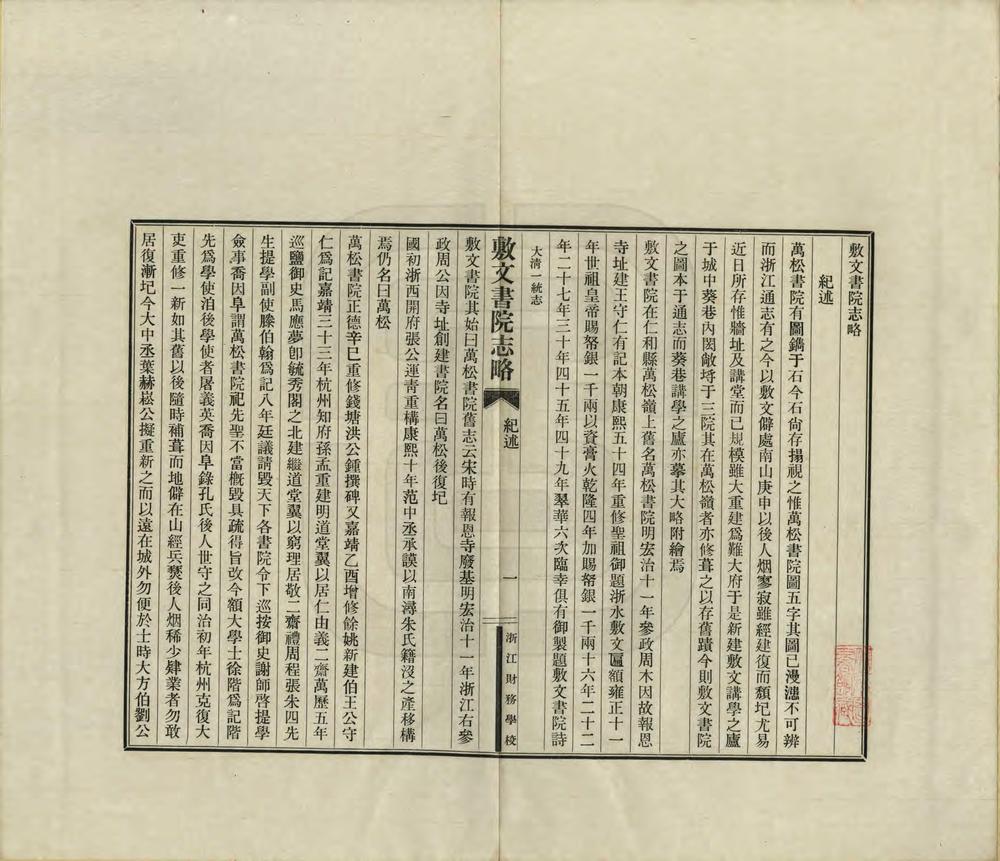 敷文書院志略
紀述
萬松書院有圖鐫于石今石尙存搨視之惟萬松書院圖五字其圖已漫漶不可辨
而浙江通志有之今以敷文僻處南山庚申以後人烟寥寂雖經建復而頽圮尤易
近日所存惟牆址及講堂而已規模雖大重建爲難大府于是新建敷文講學之廬
于城中葵巷內閎敞埒于三院其在萬松嶺者亦修葺之以存舊蹟今則敷文書院
之圖本于通志而葵巷講學之廬亦摹其大略附繪焉
敷文書院在仁和縣萬松嶺上舊名萬松書院明宏治十一年參政周木因故報恩
寺址建王守仁有記本朝康熙五十四年重修聖祖御題浙水敷文匾額雍正十一
年世祖皇帝賜帑銀一千兩以資膏火乾隆四年加賜帑銀一千兩十六年二十二
年二十七年三十年四十五年四十九年翠華六次臨幸俱有御製題敷文書院詩
大淸一統志
敷文書院志略
紀述
一
浙江財務學校
敷文書院其始曰萬松書院舊志云宋時有報恩寺廢基明宏治十一年浙江右參
政周公因寺址創建書院名曰萬松後復圮
國初浙西開府張公運靑重構康熙十年范中丞承謨以南潯朱氏籍沒之產移構
焉仍名曰萬松
萬松書院正德辛巳重修錢塘洪公鍾撰碑又嘉靖乙酉增修餘姚新建伯王公守
仁爲記嘉靖三十三年杭州知府孫孟重建明道堂翼以居仁由義二齋萬歷五年
巡鹽御史馬應夢卽毓秀閣之北建繼道堂翼以窮理居敬二齋禮周程張朱四先
生提學副使滕伯翰爲記八年廷議請毀天下各書院令下巡按御史謝師啓提學
僉事喬因阜謂萬松書院祀先聖不當槪毀具疏得旨改今額大學士徐階爲記階
先爲學使洎後學使者屠義英喬因阜錄孔氏後人世守之同治初年杭州克復大
吏重修一新如其舊以後隨時補葺而地僻在山經兵燹後人烟稀少肄業者勿敢
居復漸圮今大中丞葉赫崧公擬重新之而以遠在城外勿便於士時大方伯劉公